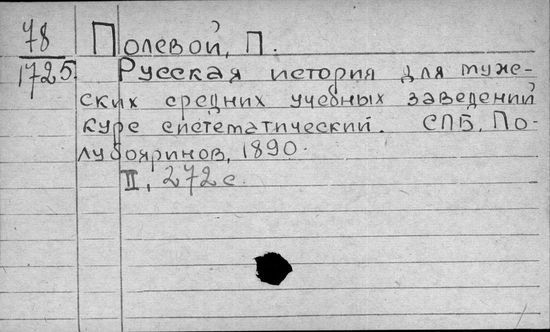 78 Полевой, П.
1725 Русская история для муже-
ских средних учебных заведений
курс систематический. СПБ, По-
лубояринов, 1890.
II, 272 с.